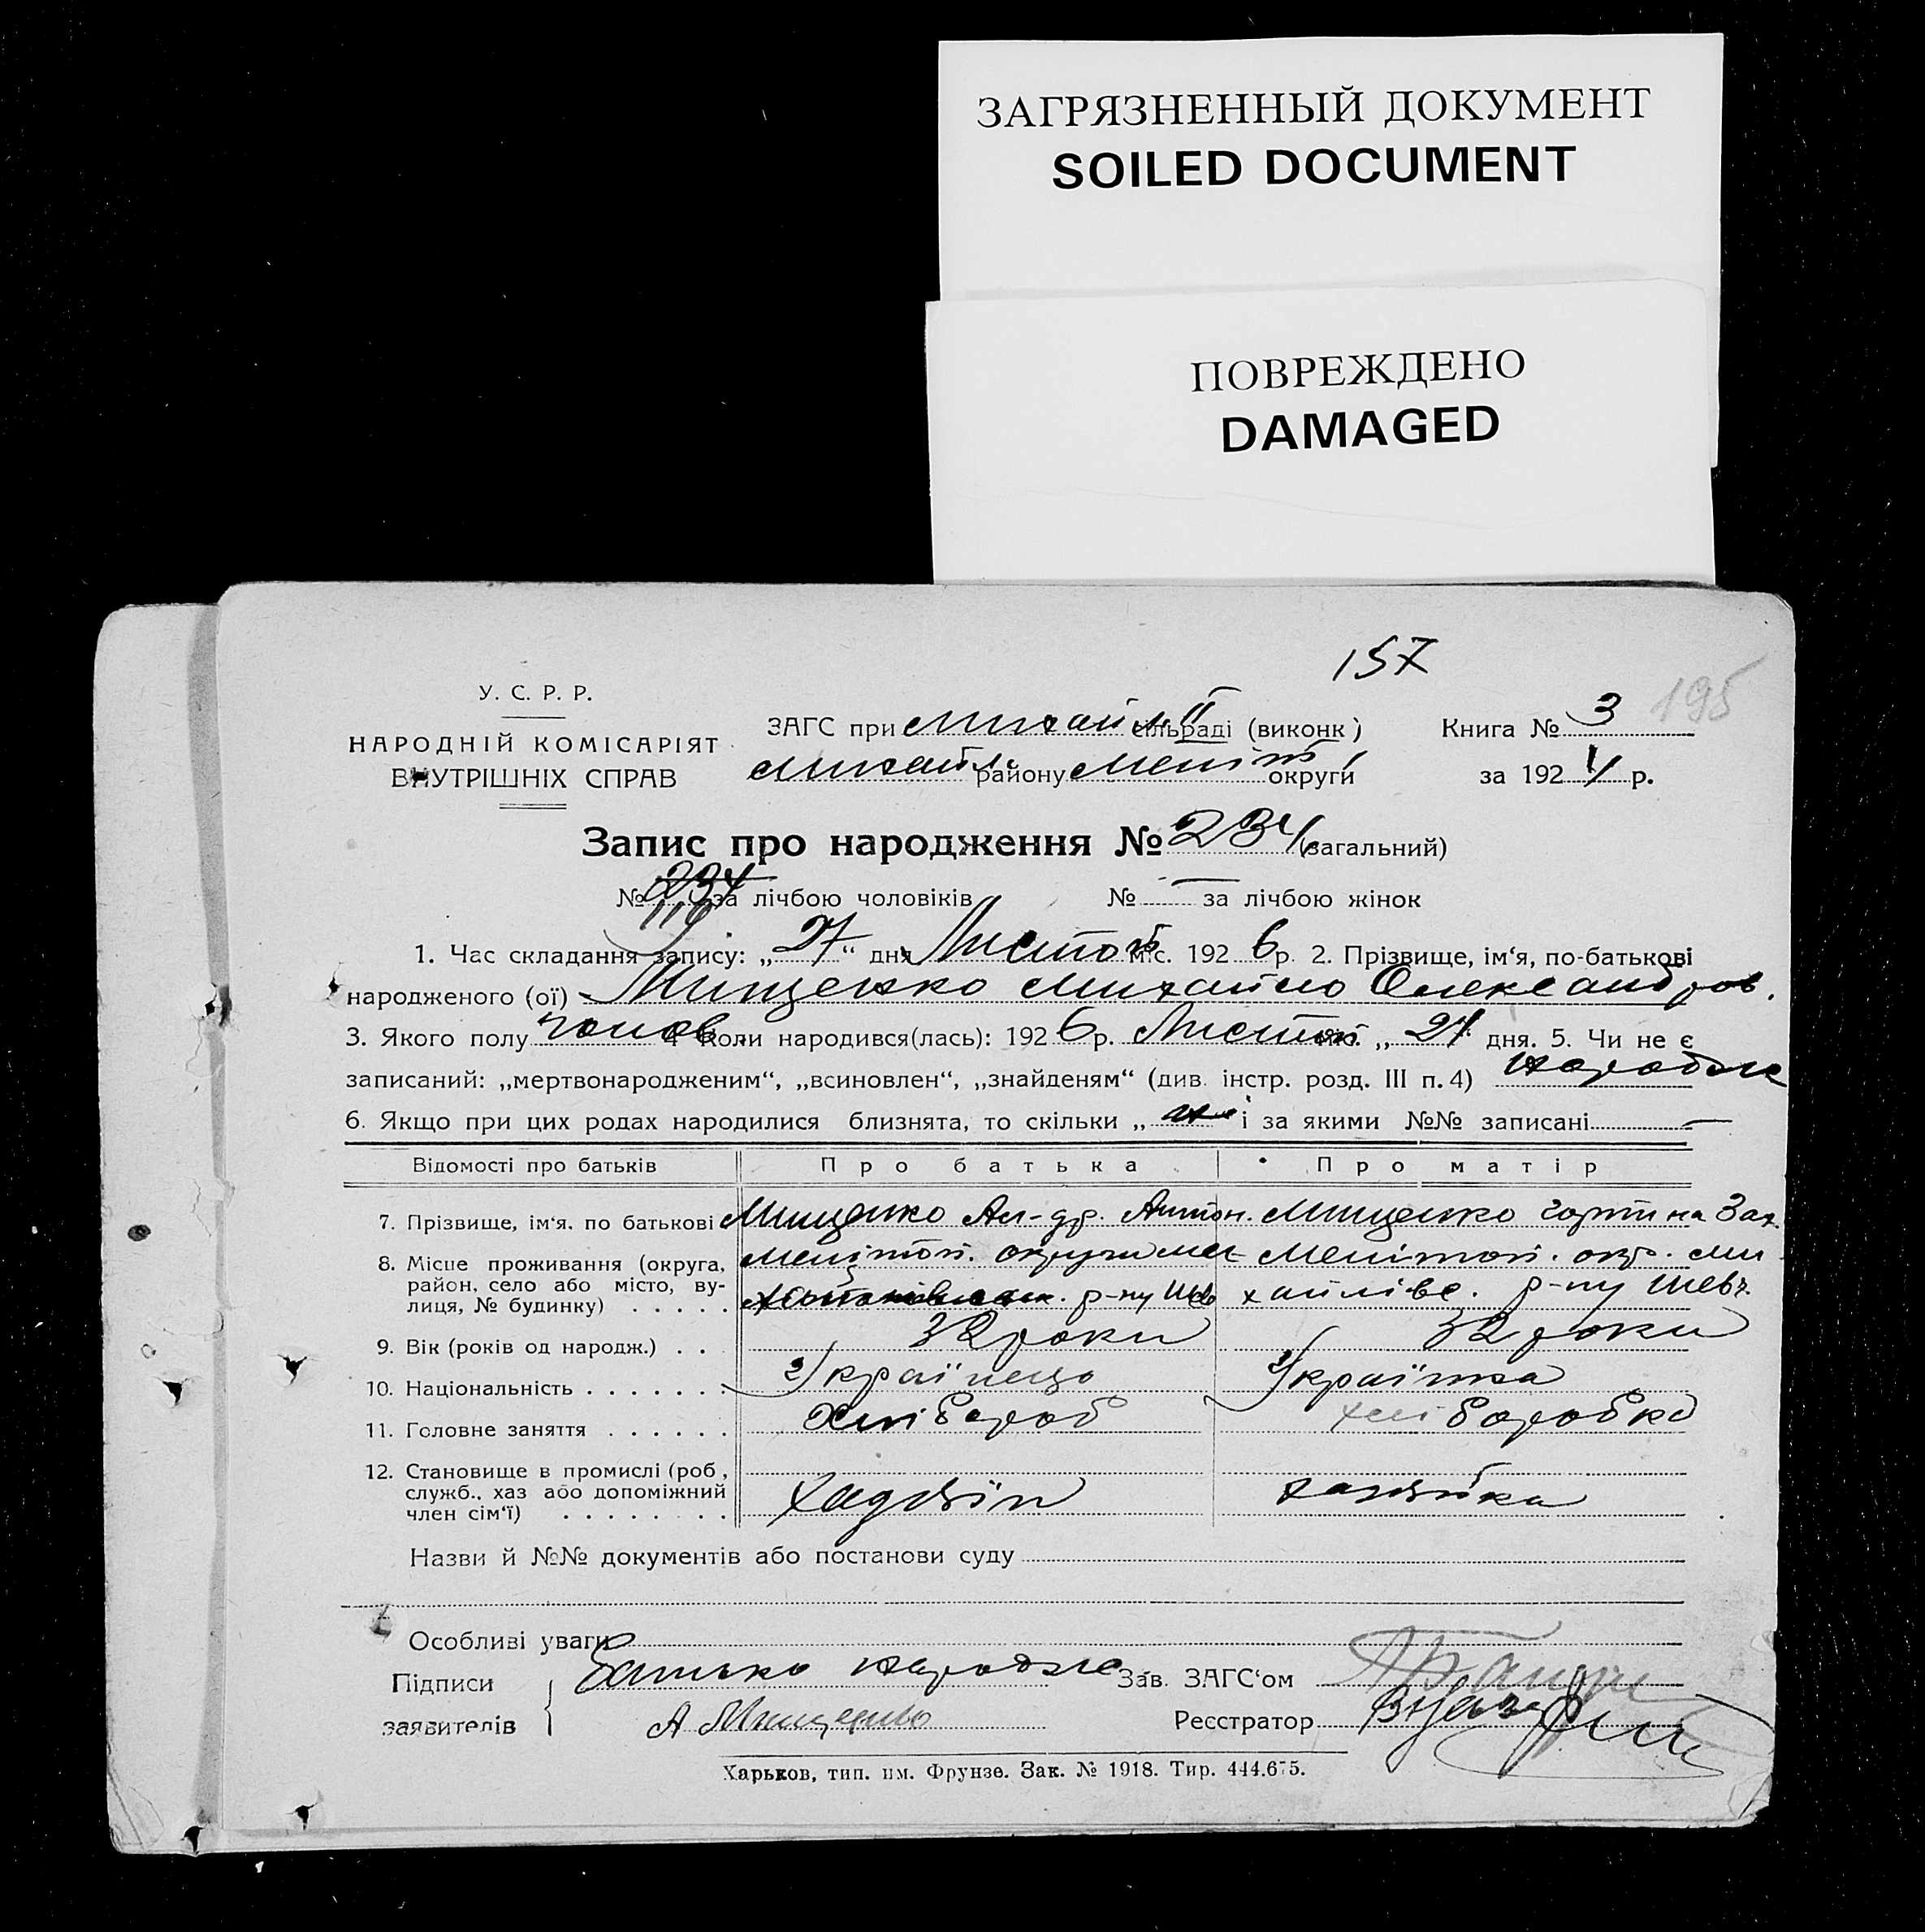 ЗАГРЯЗНЕННЫЙ ДОКУМЕНТ
SOILED DOCUMENT
ПОВРЕЖДЕНО
DAMAGED
157
195
У. С. Р. Р.
НАРОДНІЙ КОМІСАРІЯТ
ВНУТРІШНІХ СПРАВ
ЗАГС при Михайл. II сільраді (виконк)
Михайл. району Меліт. округи
Книга № 3
за 192 р.
Запис про народження № 234 (загальний)
№ 234 за лічбою чоловіків № — за лічбою жінок
116
1. Час складання запису: „27“ дня Листоп. міс. 1926 р. 2. Прізвище, ім‘я, по-батькові
народженого (ої) Мищенко Михайло Олександров.
3. Якого полу чолов. 4 Коли народився(лась): 1926 р. Листоп. міс. „ 24 “ дня. 5. Чи не є
записаний: „мертвонародженим“, „всиновлен“, „знайденям“ (див. інстр. розд. III п. 4)
6. Якщо при цих родах народилися близнята, то скільки „ і за якими №№ записані —
Відомості про батьків Про батька Про матір
7. Прізвище, ім‘я, по батькові Мищенко Ал-др. Антон. Мищенко Зах.
8. Місце проживання (округа, Мелітоп. округи Мих- Мелітоп. окр. Ми-
район, село або місто, ву-
лиця, № будинку) р-ну Шев хайлівс. р-ну Шевч.
9. Вік (років од народж.) 32 роки 32 роки
10. Національність Українець Українка
11. Головне заняття Хлібороб хлі боробка
12. Становище в промислі (роб,
служб., хаз або допоміжний
член сім‘ї) Хадзяїн хазяйка
Назви й №№ документів або постанови суду
Особливі уваги
Підписи Батько Зав. ЗАГС‘ом
заявителів А Мищенко Реєстратор
Харьков, тип. им. Фрунзе. Зак. № 1918. Тир. 444.675.